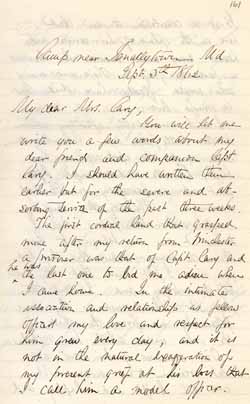 161
Camp near Tenallytown Md.
Sept. 5th 1862
My dear Mrs. Cary,
You will let me
write you a few words about my
dear friend and companion Capt
Cary. I should have written them
earlier but for the severe and ab-
sorbing service of the past three weeks.
The first cordial hand that grasped
mine after my return from Winchester
a prisoner was that of Capt. Cary and
he was
the last one to bid me adieu when
I came home. In the intimate
association and relationship as fellow
officers my love and respect for
him grew every day, and it is
not in the natural exaggeration of
my present grief at his loss that
I call him a model officer.